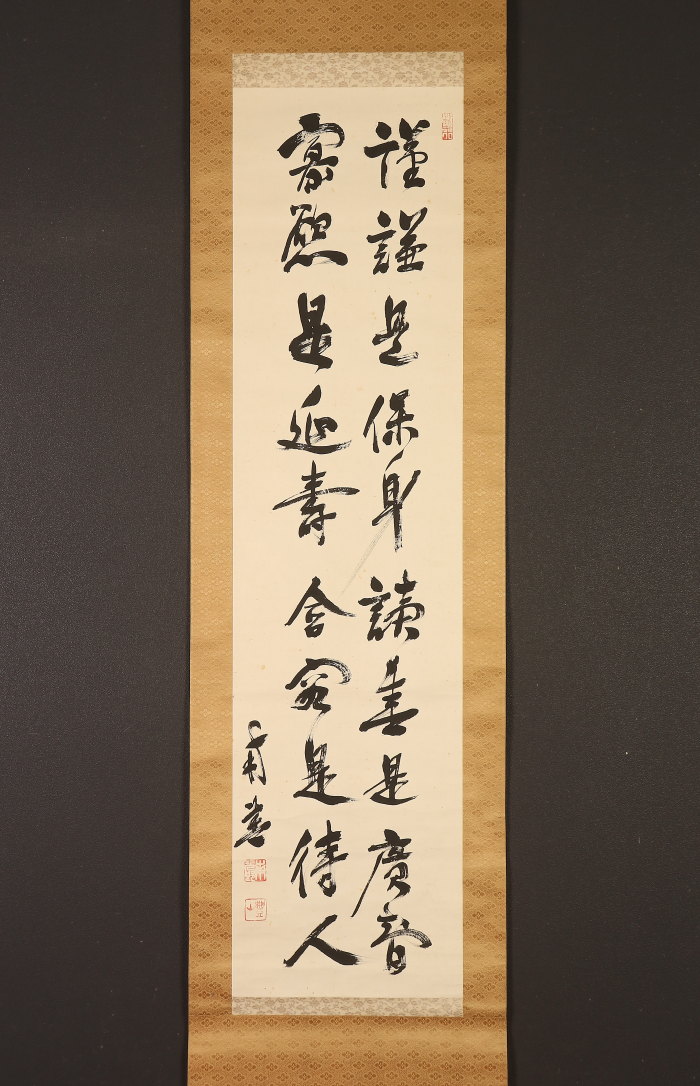 謹謙是保身讀書是廣智
寡慾是延壽含容是待人
書